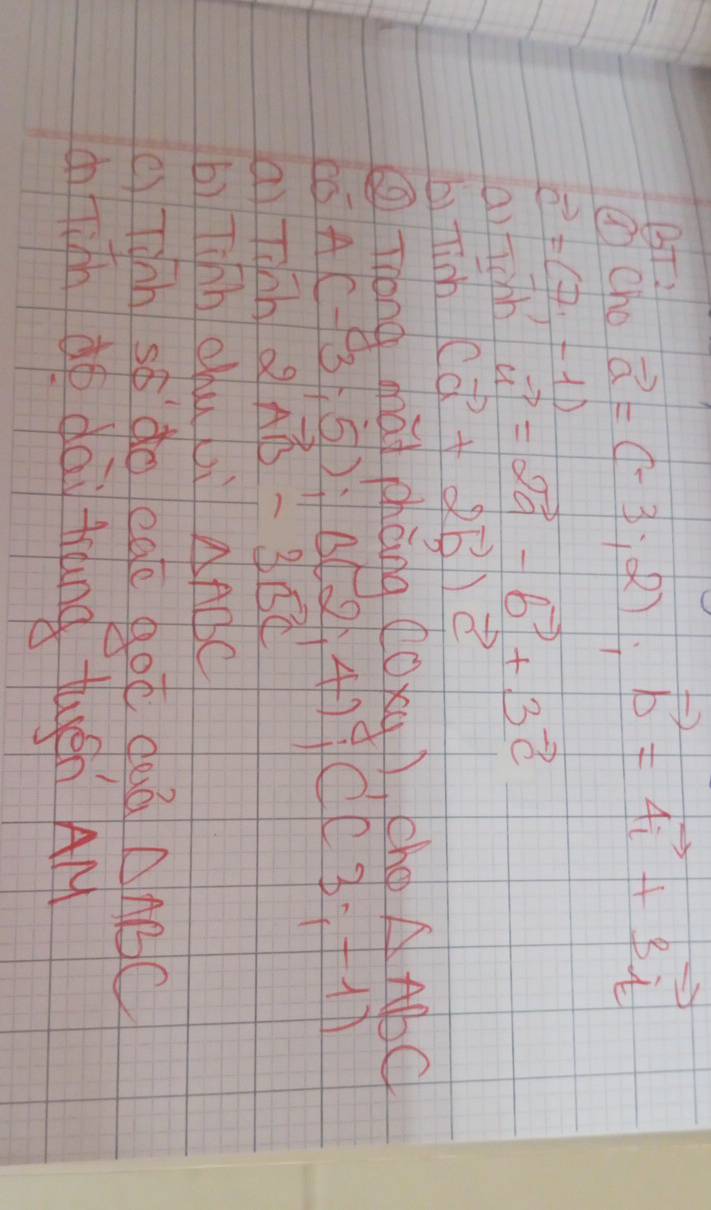 BT:
① Cho a⃗ = (-3; 2); b⃗ = 4i⃗ + 3j⃗
c⃗ = (7; -1)
a) Tính u⃗ = 2a⃗ - b⃗ + 3c⃗
b) Tính (a⃗ + 2b⃗) c⃗
② Trong mặt phẳng (oxy), cho Δ ABC
có A(-3; 5); B(2; 4); C(3; -1)
a) Tính 2AB⃗ - 3BC⃗
b) Tính chu vi ΔABC
c) Tính số đo các góc của ΔABC
d) Tính độ dài trung tuyến AM